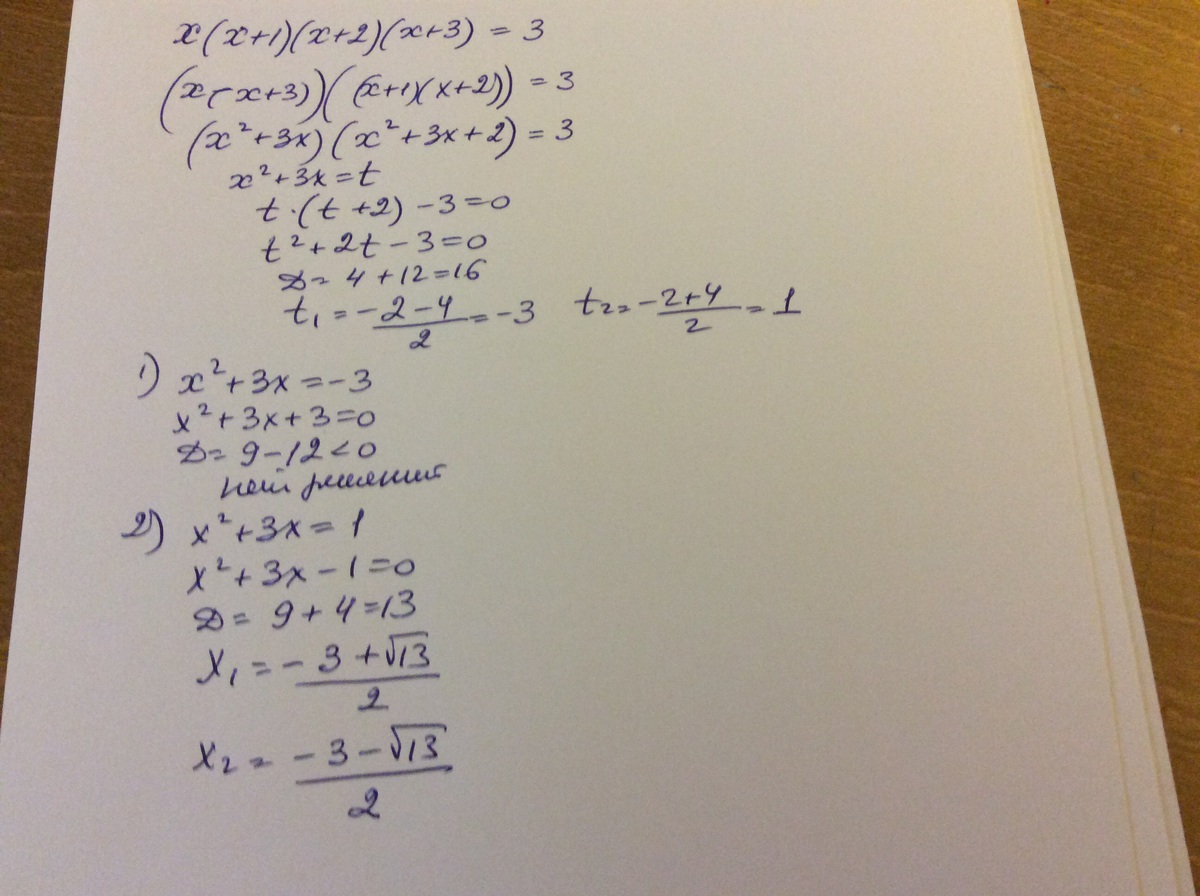 x(x+1)(x+2)(x+3) = 3
(x(-x+3))((x+1)(x+2)) = 3
(x²+3x)(x²+3x+2) = 3
x²+3x=t
t·(t+2)-3=0
t²+2t-3=0
D= 4+12=16
t₁ = -2-4/2 = -3 t₂= -2+4/2 = 1
1) x²+3x=-3
x²+3x+3=0
D= 9-12<0
нет решения
2) x²+3x= 1
x²+3x-1=0
D= 9+4=13
X₁ = -3+√13/2
X₂ = -3-√13/2